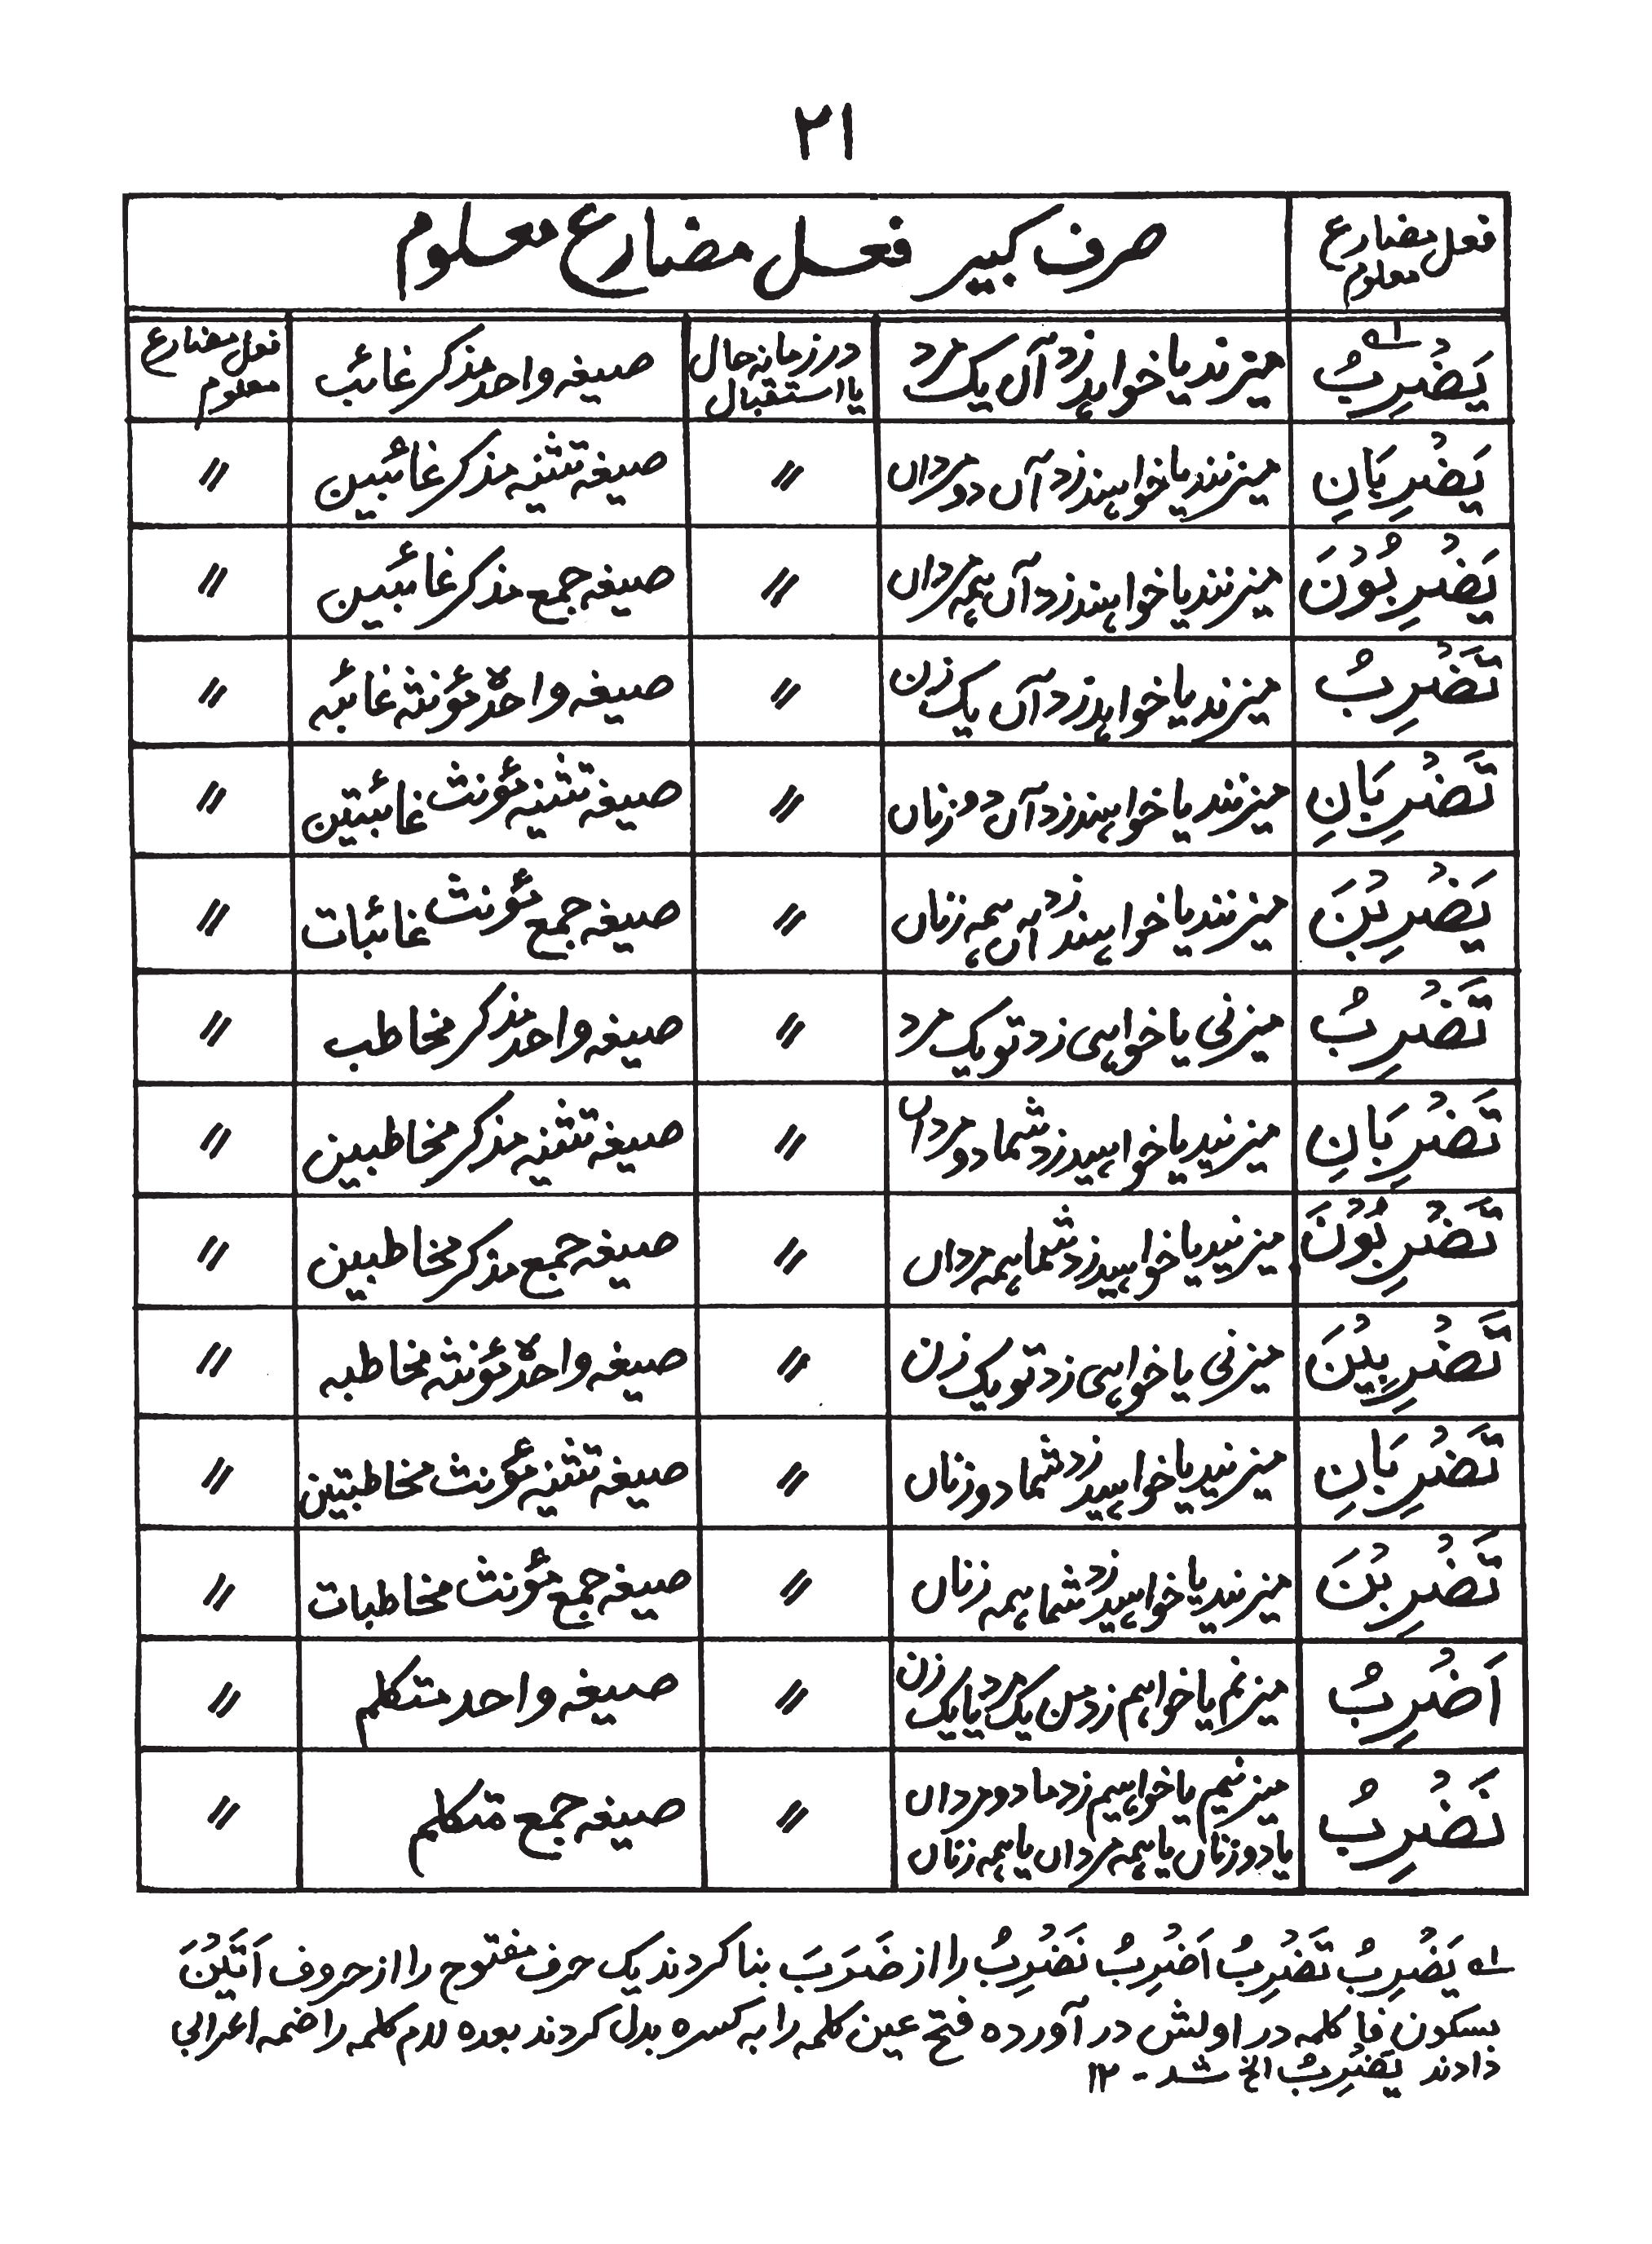 ۲۱
فعل مضارع معلوم صرف کبیر فعل مضارع معلوم
یَضْرِبُ ؂۱ میزند یا خواہد زد آں یک مرد در زمانہ حال یا استقبال صیغہ واحد مذکر غائب فعل مضارع معلوم
یَضْرِبَانِ میزنند یا خواہند زد آں دو مرداں 〃 صیغہ تثنیہ مذکر غائبین 〃
یَضْرِبُوْنَ میزنند یا خواہند زد آں ہمہ مرداں 〃 صیغہ جمع مذکر غائبین 〃
تَضْرِبُ میزند یا خواہد زد آں یک زن 〃 صیغہ واحدہ مؤنثہ غائبہ 〃
تَضْرِبَانِ میزنند یا خواہند زد آں دو زناں 〃 صیغہ تثنیہ مؤنث غائبتین 〃
یَضْرِبْنَ میزنند یا خواہند زد آں ہمہ زناں 〃 صیغہ جمع مؤنث غائبات 〃
تَضْرِبُ میزنی یا خواہی زد تو یک مرد 〃 صیغہ واحد مذکر مخاطب 〃
تَضْرِبَانِ میزنید یا خواہید زد شما دو مرداں 〃 صیغہ تثنیہ مذکر مخاطبین 〃
تَضْرِبُوْنَ میزنید یا خواہید زد شما ہمہ مرداں 〃 صیغہ جمع مذکر مخاطبین 〃
تَضْرِبِیْنَ میزنی یا خواہی زد تو یک زن 〃 صیغہ واحدہ مؤنثہ مخاطبہ 〃
تَضْرِبَانِ میزنید یا خواہید زد شما دو زناں 〃 صیغہ تثنیہ مؤنث مخاطبتین 〃
تَضْرِبْنَ میزنید یا خواہید زد شما ہمہ زناں 〃 صیغہ جمع مؤنث مخاطبات 〃
اَضْرِبُ میزنم یا خواہم زد من یک مرد یا یک زن 〃 صیغہ واحد متکلم 〃
نَضْرِبُ میزنیم یا خواہیم زد ما دو مرداں یا دو زناں یا ہمہ مرداں یا ہمہ زناں 〃 صیغہ جمع متکلم 〃
؂۱ یَضْرِبُ تَضْرِبُ اَضْرِبُ نَضْرِبُ را از ضَرَبَ بنا کردند یک حرف مفتوح را از حروف اَتَیْنَ
بسکون فا کلمہ در اولش در آوردہ فتح عین کلمہ را بہ کسرہ بدل کردند بعدہ لام کلمہ را ضمہ اعرابی
دادند یَضْرِبُ الخ شد - ۱۲